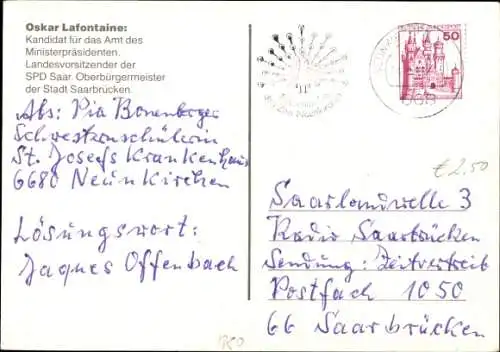 Oskar Lafontaine:
Kandidat für das Amt des
Ministerpräsidenten.
Landesvorsitzender der
SPD Saar. Oberbürgermeister
der Stadt Saarbrücken.
Abs: Pia Bonenberger
Schwesternschülerin
St. Josefs Krankenhaus
6680 Neunkirchen
Lösungswort:
Jaques Offenbach
50
€ 2.50
Saarlandwelle 3
Radio Saarbrücken
Sendung: Zeitvertreib
Postfach 1050
66 Saarbrücken